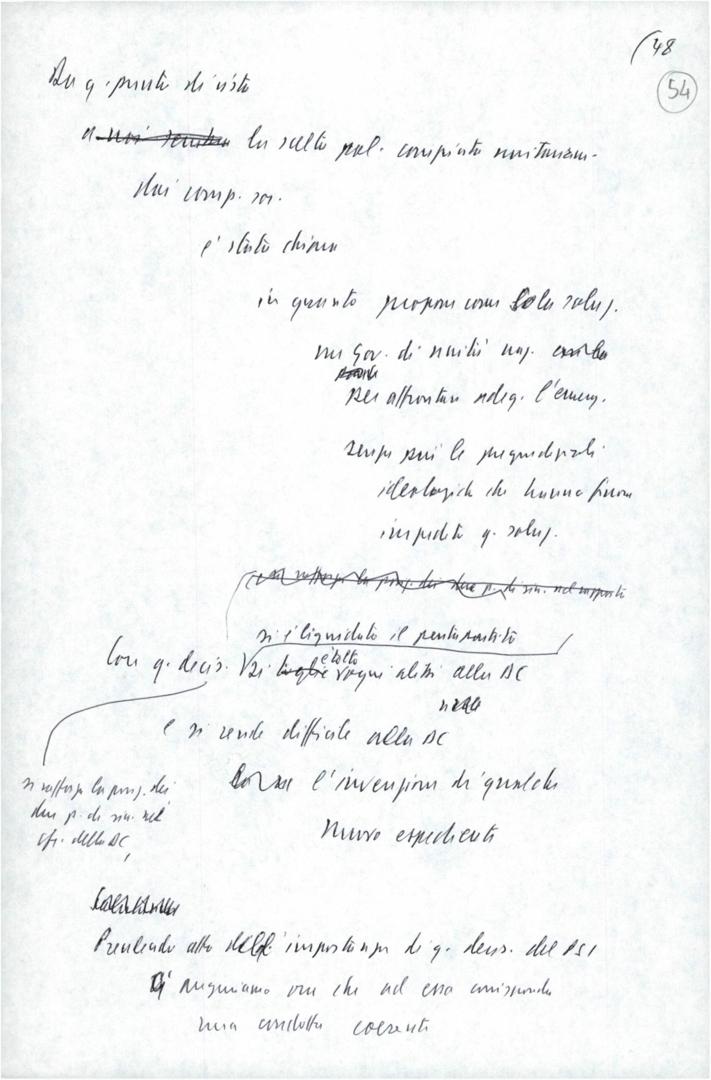 (48
54
Da q. punto di vista
a noi sembra la scelta pol. compiuta unitariam.
dai comp. soc.
e' stata chiara
in quanto propone come sola soluz.
un Gov. di unità naz.
per affrontare adeg. l'emerg.
senza più le pregiudiziali
ideologiche che hanno finora
impedito q. soluz.
si rafforza la posiz. dei due p. di sin. nel rapporto
si è liquidato il pentapartito
Con q. decis. si toglie è tolto ogni alibi alla DC
e si rende difficile alla DC
l'invenzione di qualche
nuovo espediente
si rafforza la posiz. dei
due p. di sin. nei
cfr. della DC,
Prendendo atto dell'importanza di q. decis. del PSI
ci auguriamo ora che ad essa corrisponda
una condotta coerente